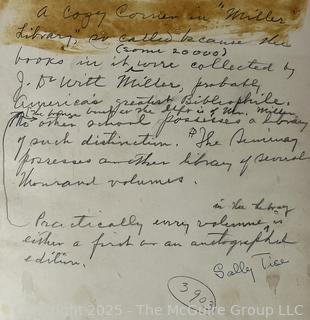 A Cozy Corner in "Miller
Library", so called because the
(some 20000)
books in it were collected by
J. De Witt Miller, probably
America's greatest Bibliophile.
(The house built for the library is of Mrs. Miller.
No other school possesses a library
of such distinction. ¶ The Seminary
possesses another library of several
thousand volumes.
in the library
Practically every volume is
either a first or an autographed
edition.
Sally Tice
3903
Copyright 2025 - The McGuire Group LLC